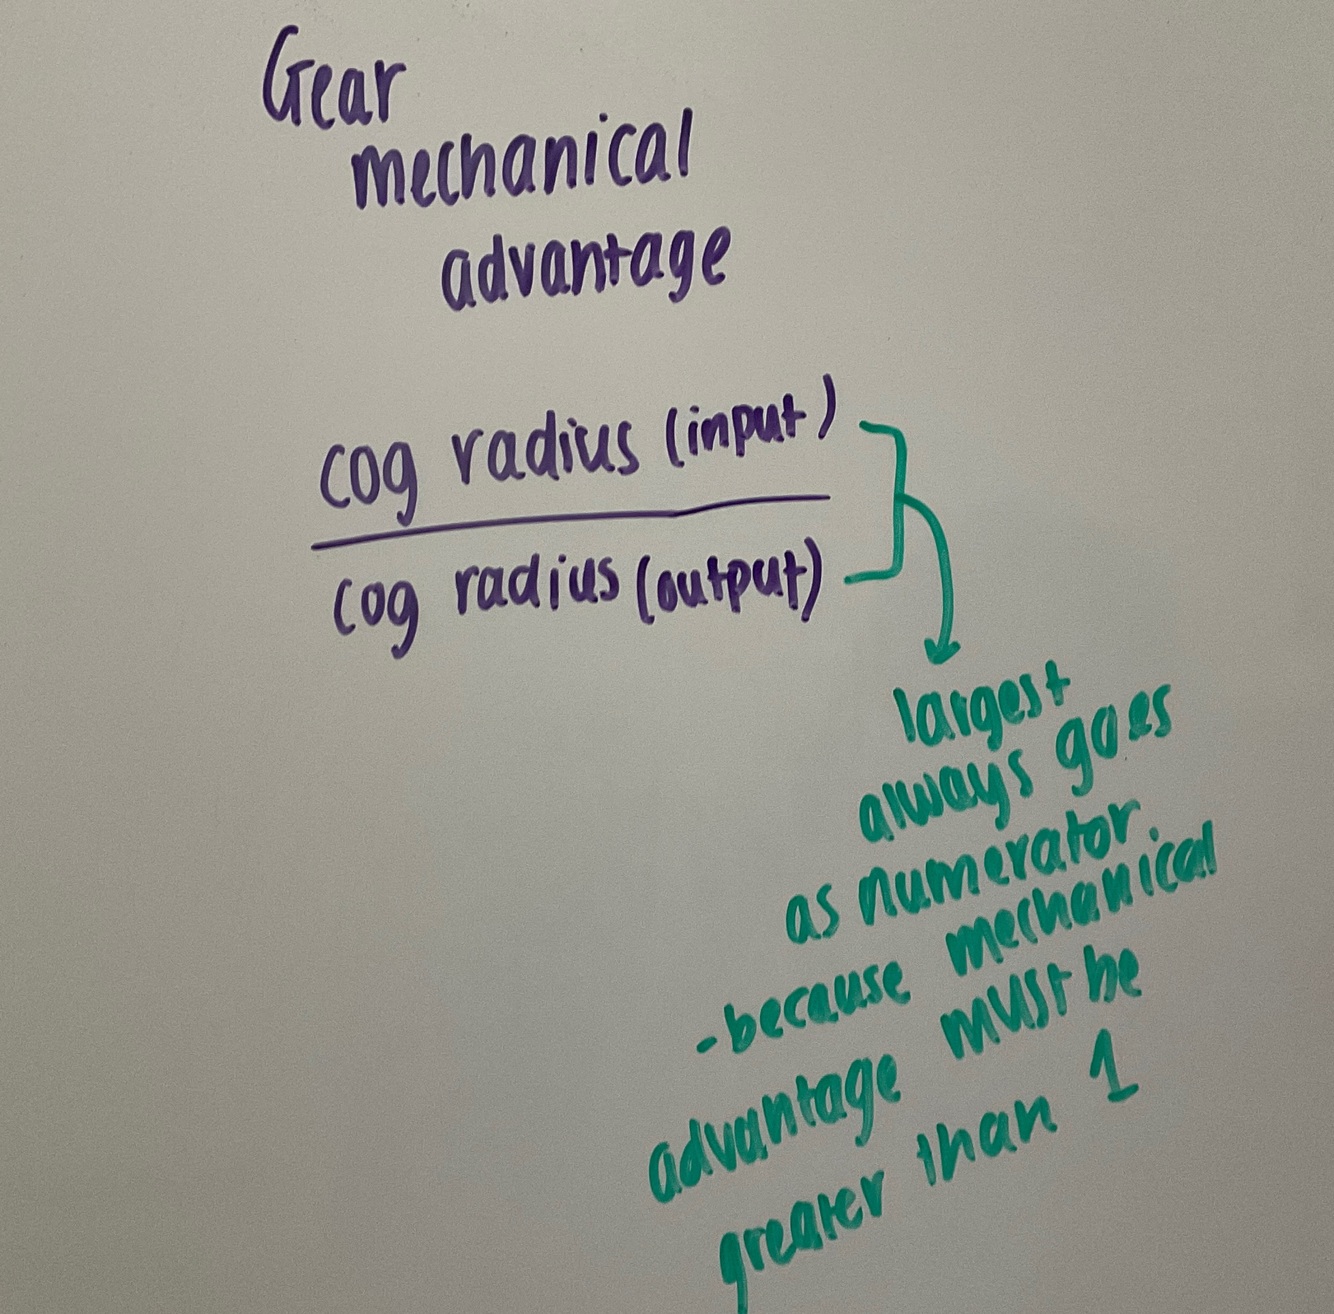 Gear
mechanical
advantage
cog radius (input)
cog radius (output)
largest
always goes
as numerator.
-because mechanical
advantage must be
greater than 1